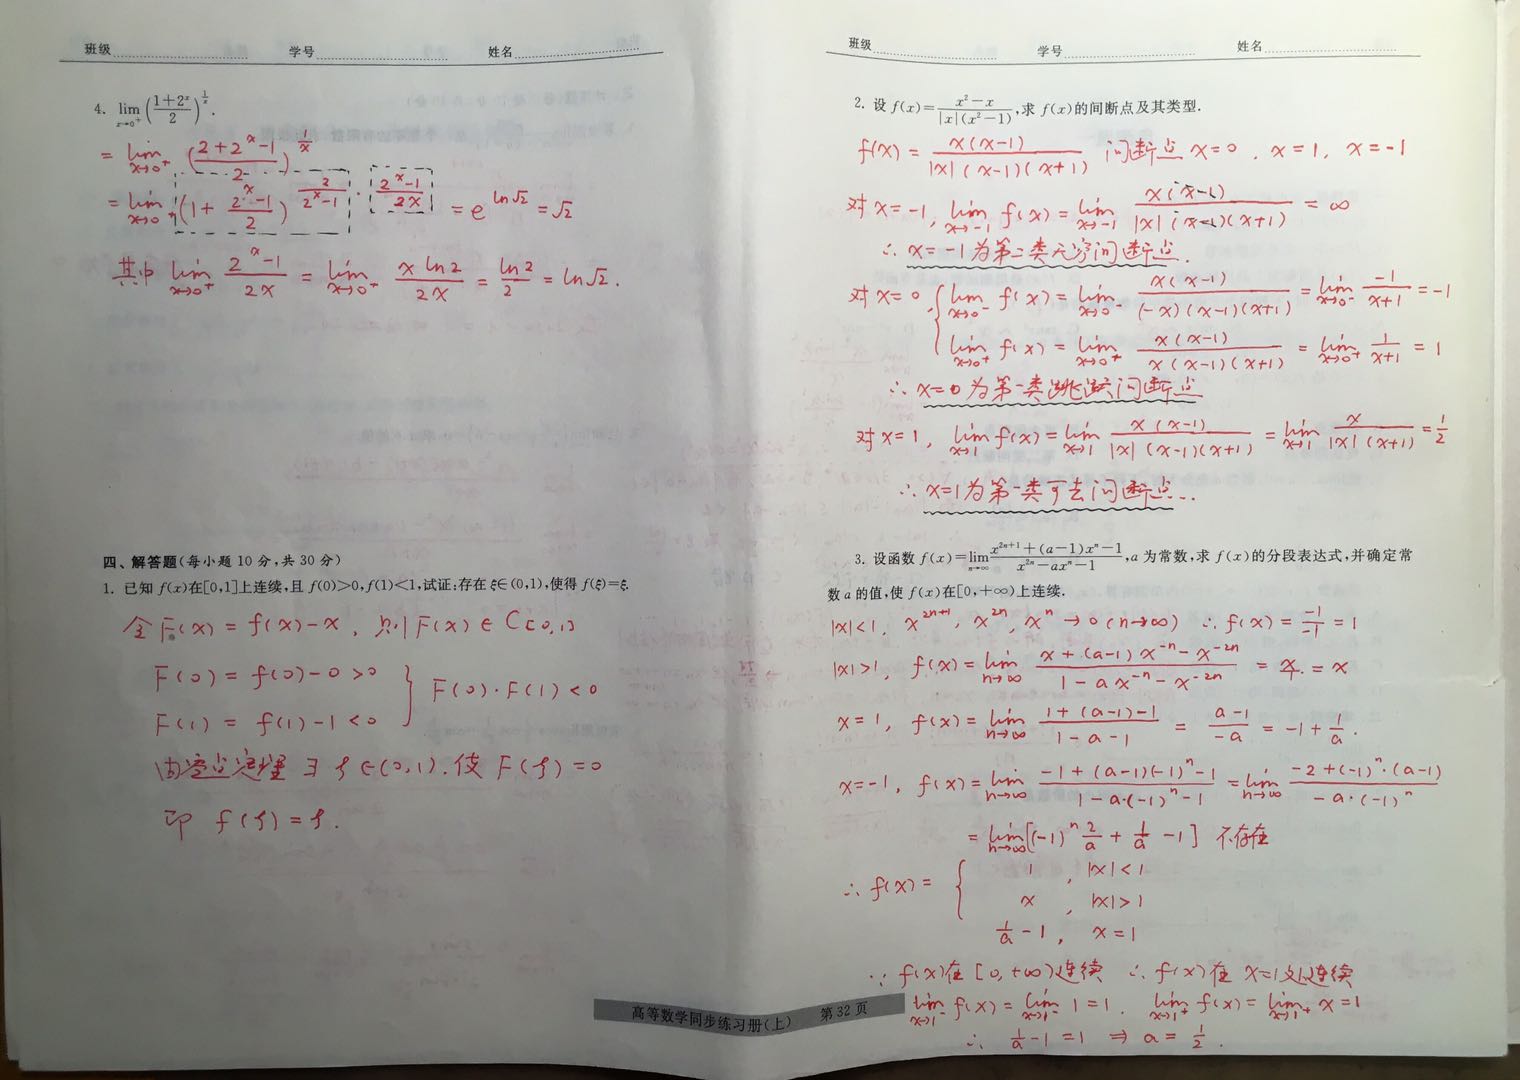 班级 学号 姓名
4. lim_{x→0⁺} ((1+2ˣ)/2)^{1/x}.
= lim_{x→0⁺} ((2+2ˣ-1)/2)^{1/x}
= lim_{x→0⁺} (1+(2ˣ-1)/2)^{2/(2ˣ-1) · (2ˣ-1)/(2x)} = e^{ln√2} = √2
其中 lim_{x→0⁺} (2ˣ-1)/(2x) = lim_{x→0⁺} (x ln2)/(2x) = ln2/2 = ln√2.
四、解答题(每小题 10 分,共 30 分)
1. 已知 f(x)在[0,1]上连续,且 f(0)>0,f(1)<1,试证:存在 ξ∈(0,1),使得 f(ξ)=ξ.
令 F(x) = f(x)-x, 则 F(x) ∈ C[0,1]
F(0) = f(0)-0 >0
F(1) = f(1)-1 <0
} F(0)·F(1) <0
由零点定理 ∃ ξ∈(0,1). 使 F(ξ)=0
即 f(ξ)=ξ.
班级 学号 姓名
2. 设 f(x)=(x²-x)/(|x|(x²-1)),求 f(x)的间断点及其类型.
f(x) = x(x-1)/(|x|(x-1)(x+1)) 间断点 x=0, x=1, x=-1
对 x=-1, lim_{x→-1} f(x) = lim_{x→-1} x(x-1)/(|x|(x-1)(x+1)) = ∞
∴ x=-1为第二类无穷间断点.
对 x=0, { lim_{x→0⁻} f(x) = lim_{x→0⁻} x(x-1)/((-x)(x-1)(x+1)) = lim_{x→0⁻} -1/(x+1) = -1
lim_{x→0⁺} f(x) = lim_{x→0⁺} x(x-1)/(x(x-1)(x+1)) = lim_{x→0⁺} 1/(x+1) = 1
∴ x=0为第一类跳跃间断点
对 x=1, lim_{x→1} f(x) = lim_{x→1} x(x-1)/(|x|(x-1)(x+1)) = lim_{x→1} x/(|x|(x+1)) = 1/2
∴ x=1为第一类可去间断点.
3. 设函数 f(x)=lim_{n→∞} (x²ⁿ⁺¹+(a-1)xⁿ-1)/(x²ⁿ-axⁿ-1),a 为常数,求 f(x)的分段表达式,并确定常
数 a 的值,使 f(x)在[0,+∞)上连续.
|x|<1, x²ⁿ⁺¹, x²ⁿ, xⁿ → 0 (n→∞) ∴ f(x) = -1/-1 = 1
|x|>1, f(x) = lim_{n→∞} (x+(a-1)x⁻ⁿ-x⁻²ⁿ)/(1-ax⁻ⁿ-x⁻²ⁿ) = x/1 = x
x=1, f(x) = lim_{n→∞} (1+(a-1)-1)/(1-a-1) = (a-1)/(-a) = -1+1/a.
x=-1, f(x) = lim_{n→∞} (-1+(a-1)(-1)ⁿ-1)/(1-a·(-1)ⁿ-1) = lim_{n→∞} (-2+(-1)ⁿ·(a-1))/(-a·(-1)ⁿ)
= lim_{n→∞} [(-1)ⁿ 2/a + 1/a -1] 不存在
∴ f(x) = { 1, |x|<1
x, |x|>1
1/a -1, x=1
∵ f(x)在[0,+∞)连续 ∴ f(x)在 x=1处连续
lim_{x→1⁻} f(x) = lim_{x→1⁻} 1=1. lim_{x→1⁺} f(x) = lim_{x→1⁺} x=1
∴ 1/a -1 = 1 ⇒ a = 1/2.
高等数学同步练习册(上) 第 32 页